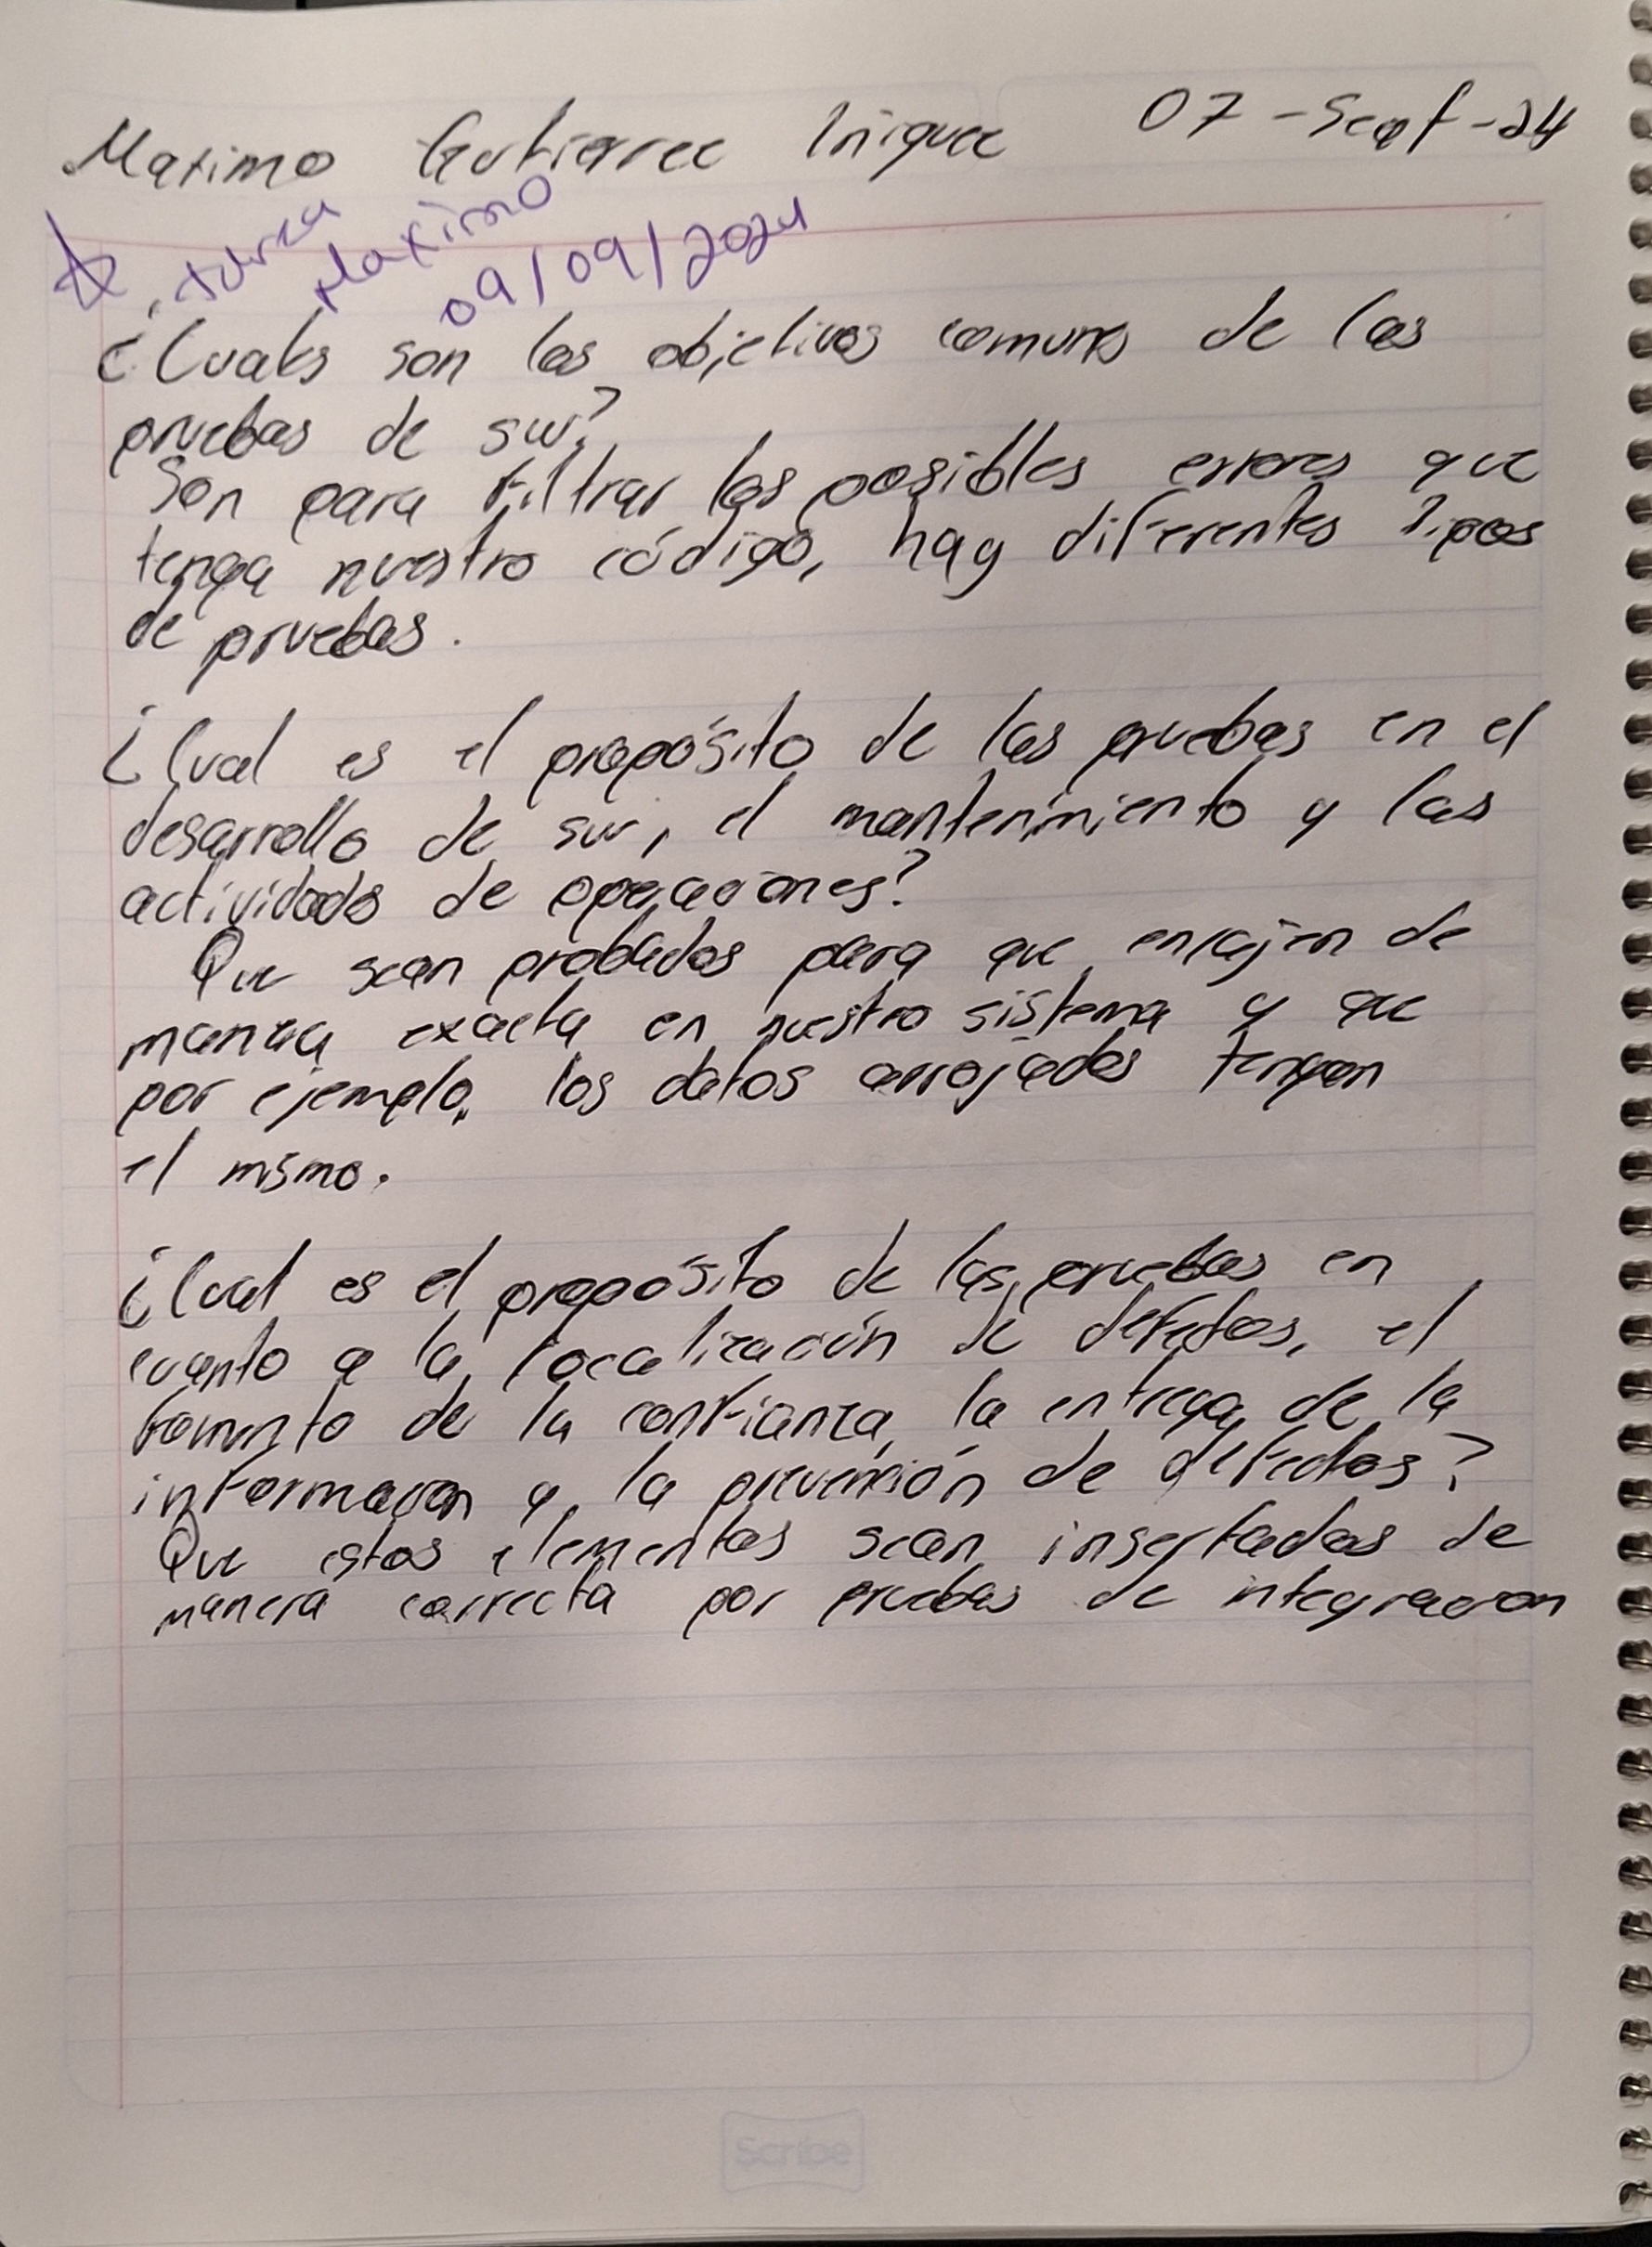 Maximo Gutierrez Iñiguez 07-Sept-24
tarea
Maximo
09/09/2024
¿Cuales son los objetivos comunes de las
pruebas de sw?
Son para filtrar los posibles errores que
tenga nuestro código, hay diferentes tipos
de pruebas.
¿Cual es el propósito de las pruebas en el
desarrollo de sw, el mantenimiento y las
actividades de operaciones?
Que sean probados para que encajen de
manera exacta en nuestro sistema y que
por ejemplo, los datos arrojados tengan
el mismo.
¿Cual es el propósito de las pruebas en
cuanto a la localización de defectos, el
fomento de la confianza, la entrega de la
informacion y la prevención de defectos?
Que estos elementos sean insertados de
manera correcta por pruebas de integracion
Scribe